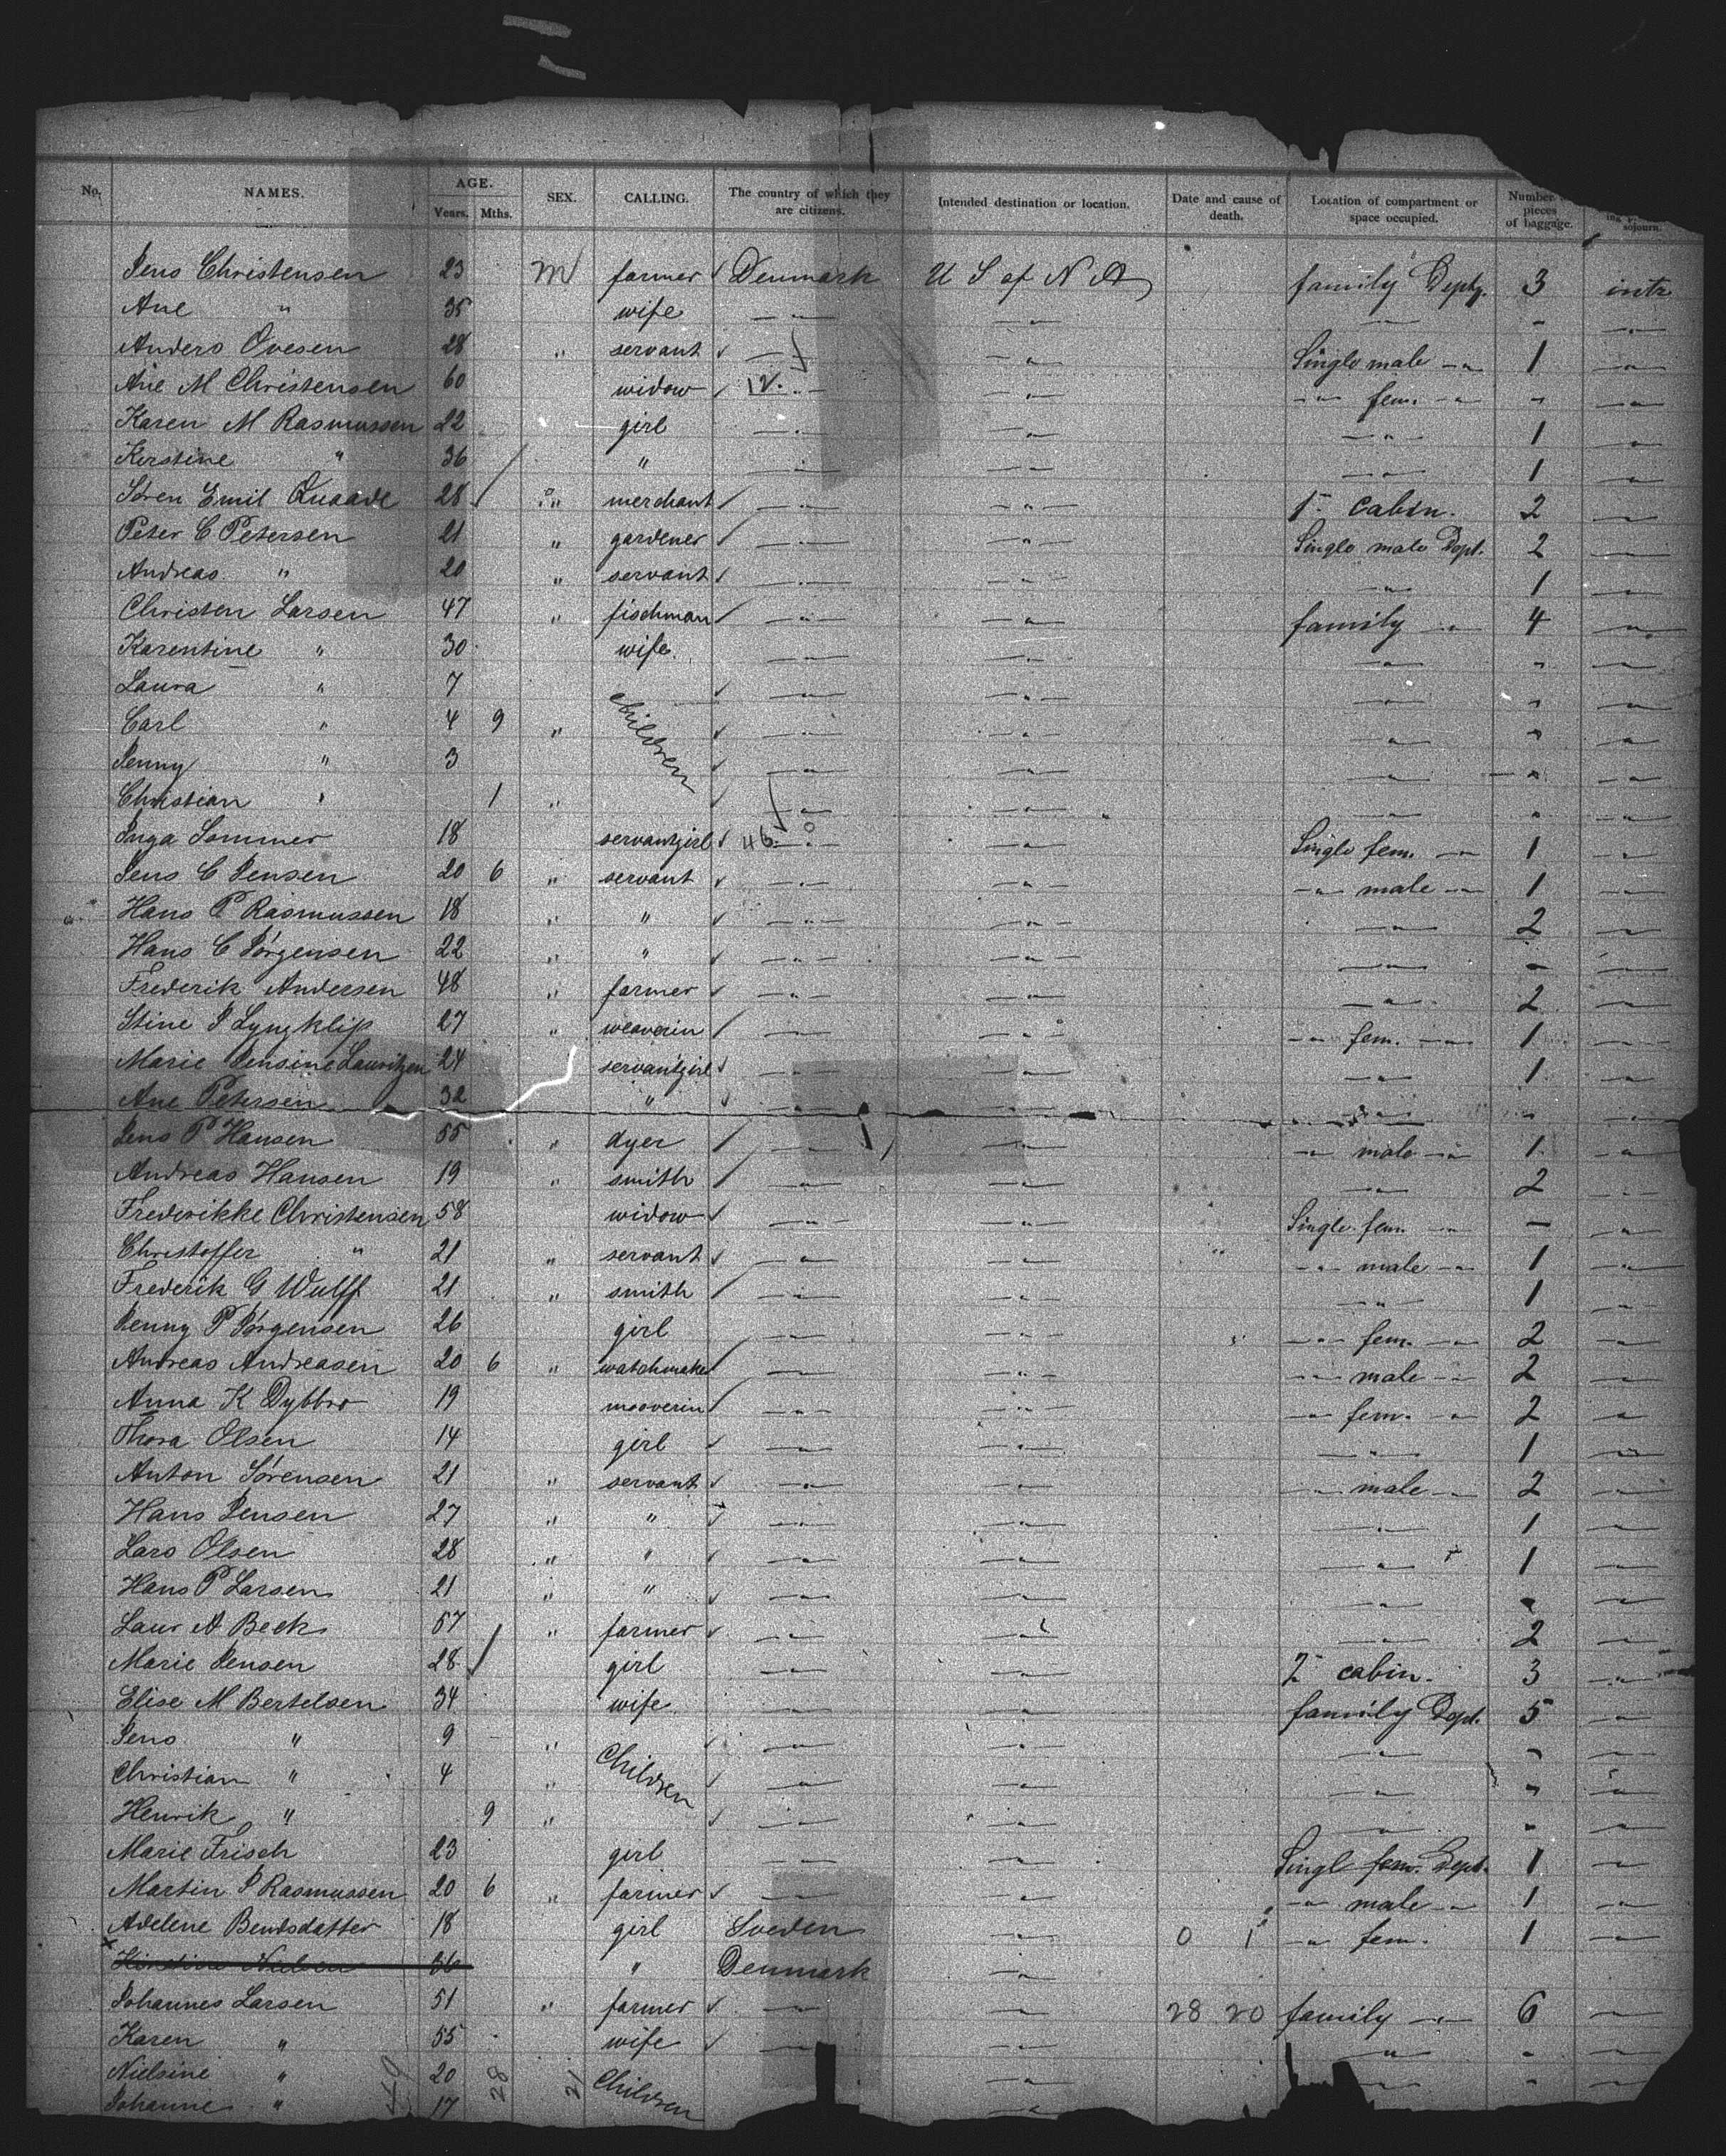 No. NAMES. AGE. Years. Mths. SEX. CALLING. The country of which they are citizens. Intended destination or location. Date and cause of death. Location of compartment or space occupied. Number pieces of baggage. sojourn.
Jens Christensen 23 M farmer Denmark U S of N A family Dept. 3 intr
Ane " 35 wife
Anders Ovesen 28 " servant Single male 1
Ane M Christensen 60 widow 12. fem.
Karen M Rasmussen 22 girl 1
Kerstine " 36 " 1
Søren Emil Quaade 28 " merchant 1 cabin. 2
Peter C Petersen 21 " gardener Single male Dept. 2
Andreas " 20 " servant 1
Christen Larsen 47 " fischman family 4
Karentine " 30 wife
Laura " 7 children
Carl " 4 9 "
Jenny " 3
Christian " 1 "
Inga Sommer 18 servantgirl 46 Single fem. 1
Jens C Jensen 20 6 " servant male 1
Hans P Rasmussen 18 " " 2
Hans C Jørgensen 22 " "
Frederik Andersen 48 " farmer 2
Stine J Lyngklip 27 " weaverin fem. 1
Marie Jensine Lauritzen 24 servantgirl 1
Ane Petersen 32 "
Jens P Hansen 55 " dyer male 1
Andreas Hansen 19 " smith 2
Frederikke Christensen 58 widow Single fem.
Christoffer " 21 " servant male 1
Frederik G Wulff 21 " smith 1
Jenny P Jørgensen 26 girl fem. 2
Andreas Andreasen 20 6 " watchmaker male 2
Anna K Dybbro 19 fem. 2
Thora Olsen 14 girl 1
Anton Sørensen 21 " servant male 2
Hans Jensen 27 " " 1
Lars Olsen 28 " " 1
Hans P Larsen 21 " "
Laur A Beck 57 " farmer 2
Marie Jensen 28 girl 2 cabin. 3
Elise M Bertelsen 34 wife family Dept. 5
Jens " 9 " Children
Christian " 4 "
Henrik " 9 "
Marie Frisch 23 girl Singl fem. Dept. 1
Martin J Rasmussen 20 6 " farmer male 1
Adelene Bendsdatter 18 girl Sveden 0 1 fem. 1
x 36 " Denmark
Johannes Larsen 51 " farmer 28 20 family 6
Karen " 55 wife
Nielsine " 20 Children
Johanne " 17
49 28 21